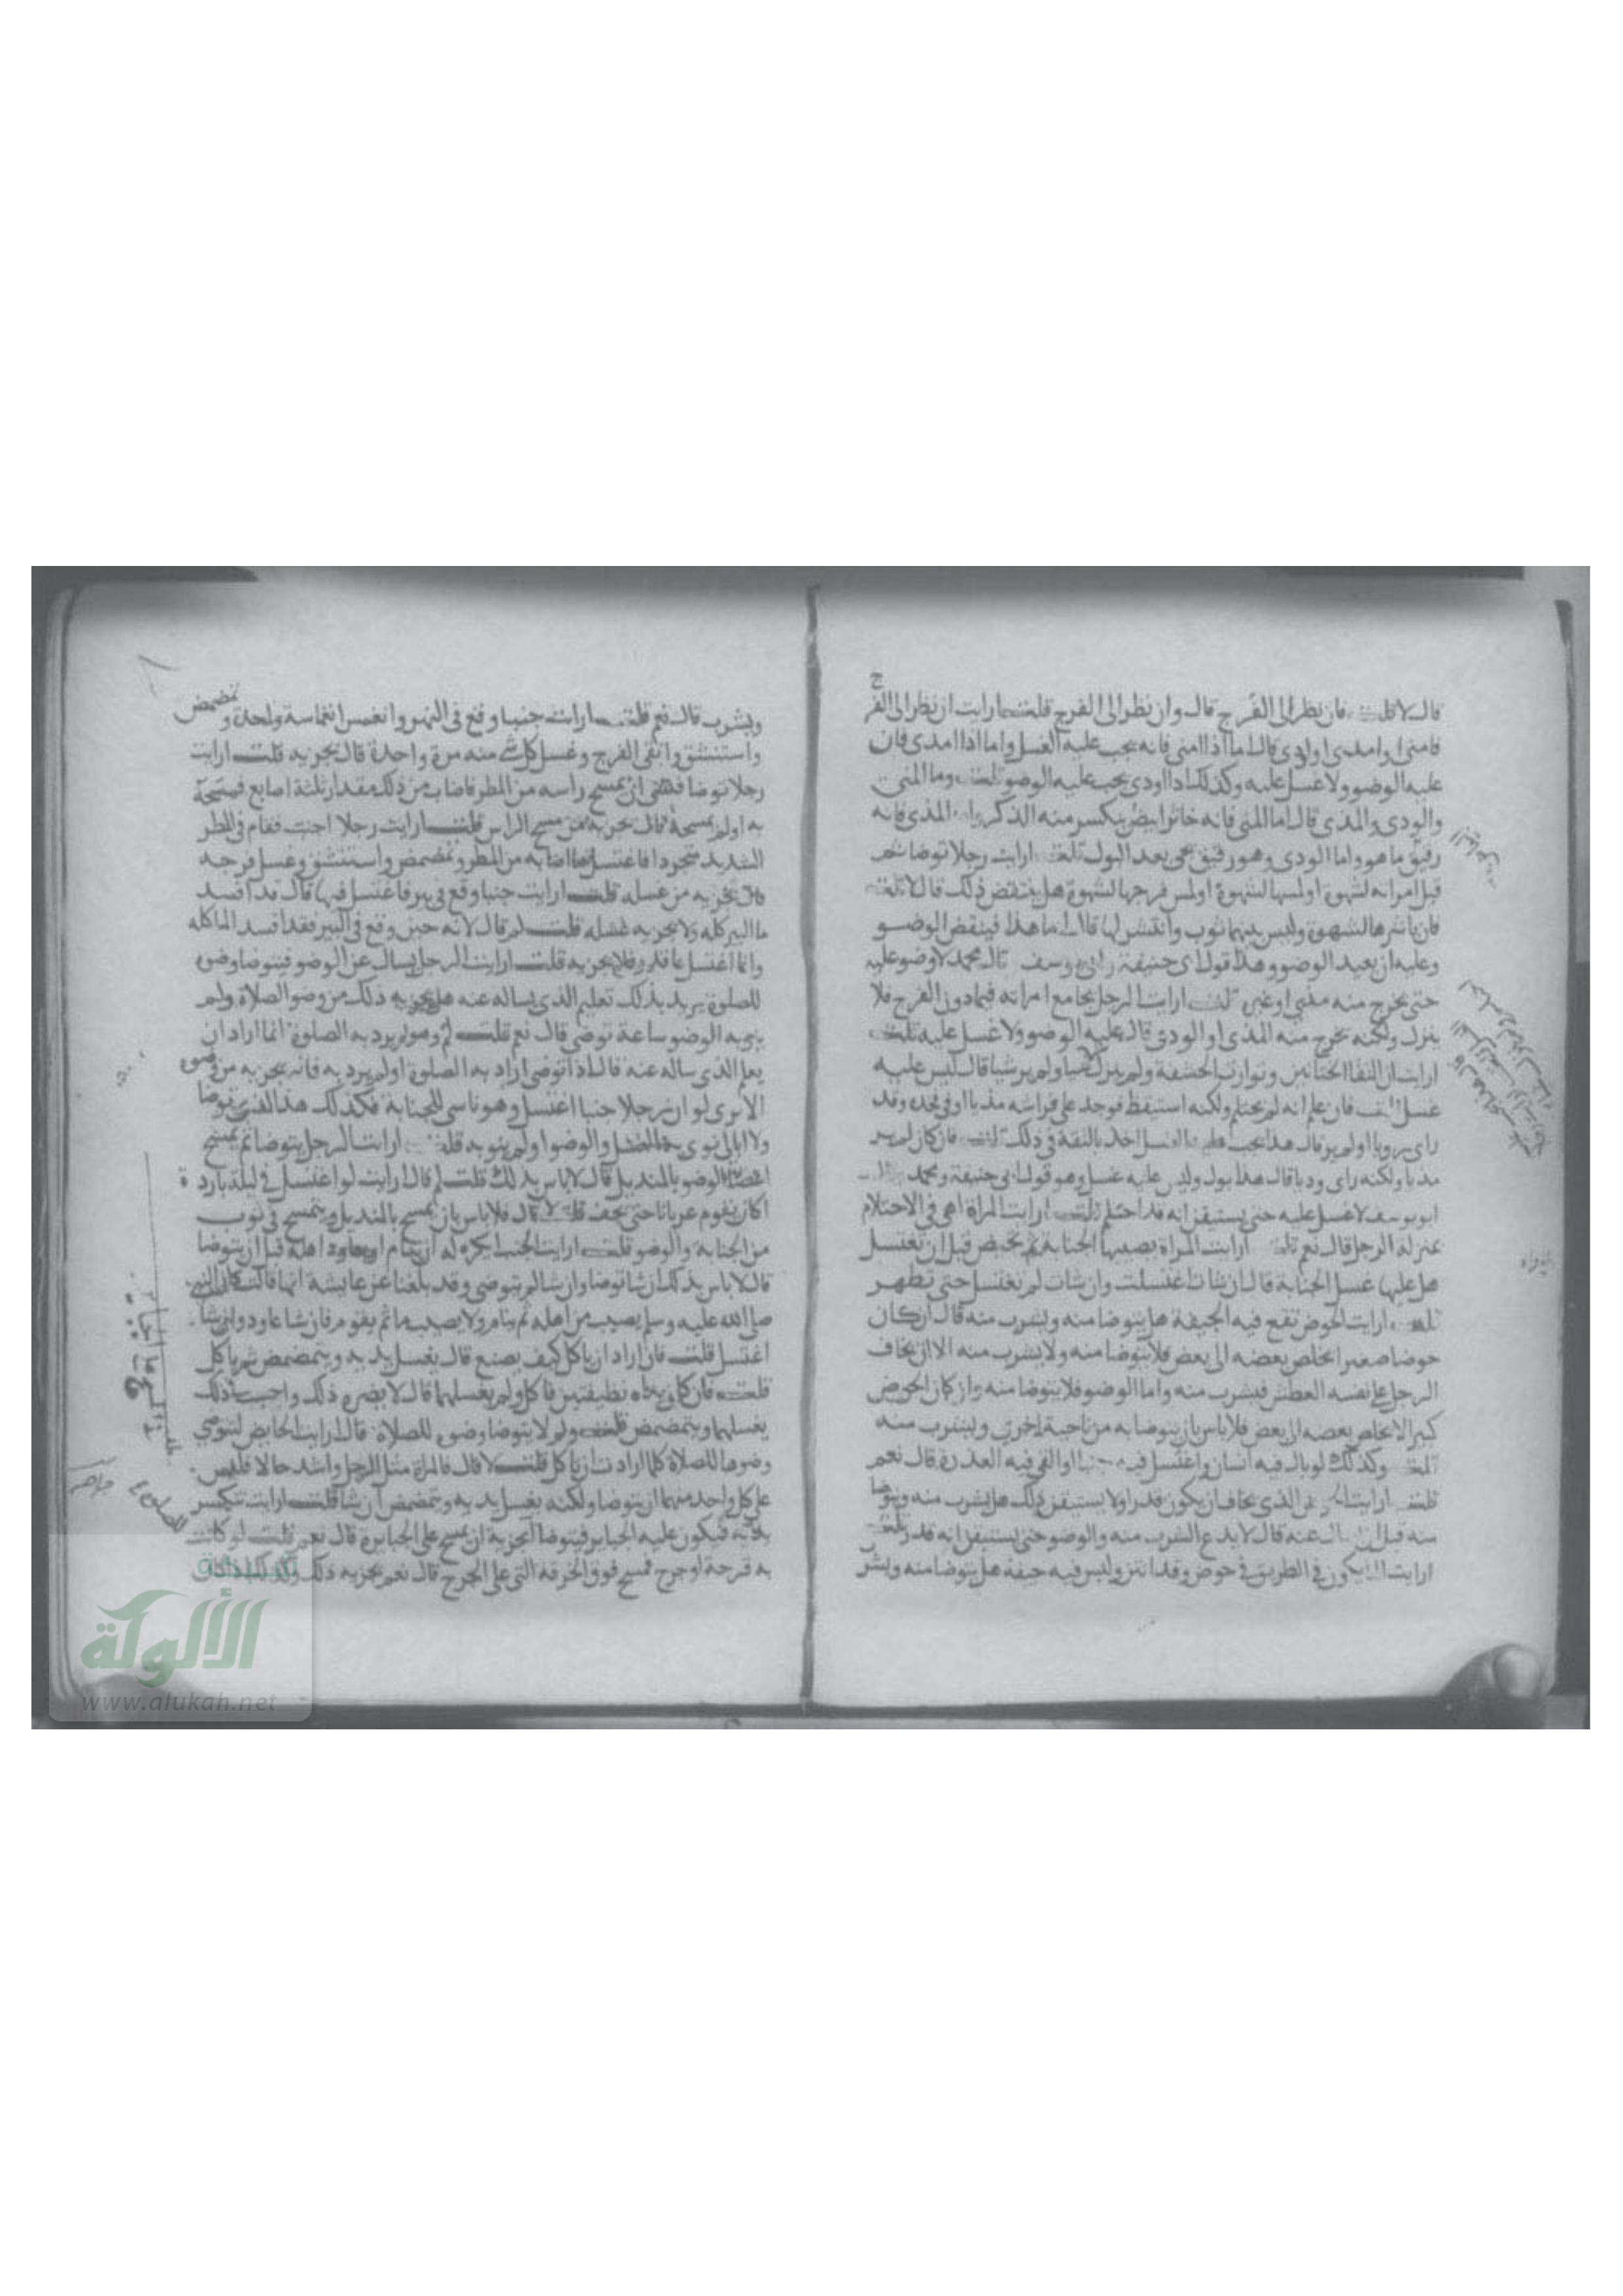 قال لا قلت فان نظر الى الفرج قال وان نظر الى الفرج قلت ارايت ان نظر الى الفرج
فامنى او امذى او اودى قال اما اذا امنى فانه يجب عليه الغسل واما اذا امذى فان
عليه الوضوء ولا غسل عليه وكذلك اذا اودى يجب عليه الوضو قلت وما المنى
والودى والمذى قال اما المنى فانه خاثر ابيض ينكسر منه الذكر واما المذى فانه
رقيق ما هو واما الودى وهو رقيق يجى بعد البول قلت ارايت رجلا توضا ثم
قبل امراته لشهوة او لمسها لشهوة او لمس فرجها لشهوة هل ينتقض ذلك قال لا قلت
فان باشرها لشهوة وليس بينهما ثوب وانتشر لها قال اما هذا فينقض الوضو
وعليه ان يعيد الوضو وهذا قول ابى حنيفة وابى يوسف قال محمد لا وضو عليه
حتى يخرج منه مذى او غيره قلت ارايت الرجل يجامع امراته فيما دون الفرج فلا
ينزل ولكنه يخرج منه المذى او الودى قال عليه الوضو ولا غسل عليه قلت
ارايت ان التقا الختانين وتوارت الحشفة ولم ينزل
غسل قلت فان علم انه لم يحتلم ولكنه استيقظ فوجد على فراشه مذيا او فى فخذه وقد
راى رويا او لم ير قال هذا يجب عليه الغسل اخذ بالثقة فى ذلك قلت فان كان لم ير
مذيا ولكنه راى وديا قال هذا بول وليس عليه غسل وهو قول ابى حنيفة ومحمد قال
ابو يوسف لا غسل عليه حتى يستيقن انه قد احتلم قلت ارايت المراة اهى فى الاحتلام
بمنزلة الرجل قال نعم قلت ارايت المراة يصيبها الجنابة ثم تحيض قبل ان تغتسل
هل عليها غسل الجنابة قال ان شات اغتسلت وان شات لم تغتسل حتى تطهر
قلت ارايت الحوض تقع فيه الجيفة هل يتوضا منه ويشرب منه قال ان كان
حوضا صغيرا يخلص بعضه الى بعض فلا يتوضا منه ولا يشرب منه الا ان يخاف
الرجل على نفسه العطش فيشرب منه واما الوضو فلا يتوضا منه وان كان الحوض
كبيرا لا يخلص بعضه الى بعض فلا باس بان يتوضا به من ناحية اخرى ويشرب منه
قلت وكذلك لو بال فيه انسان او اغتسل فيه جنبا او القى فيه العذرة قال نعم
قلت ارايت الحوض الذى يخاف ان يكون قذرا ولا يستيقن ذلك هل يشرب منه ويتوضا
منه قبل ان يسال عنه قال لا يدع الشرب منه والوضو حتى يستيقن انه قذر قلت
ارايت الما يكون فى الطريق فى حوض وقد انتن وليس فيه جيفة هل يتوضا منه ويشرب
ويشرب قال نعم قلت ارايت جنبا وقع فى النهر وانغمس انغماسة واحدة وتمضمض
واستنشق وانقى الفرج وغسل كل شى منه مرة واحدة قال يجزيه قلت ارايت
رجلا توضا فنسى ان يمسح راسه من المطر فاصاب من ذلك مقدار ثلثة اصابع فمسحه
به او لم يمسحه قال يجزيه من مسح الراس قلت ارايت رجلا اجنب فقام فى المطر
الشديد متجردا فاغتسل بما اصابه من المطر وتمضمض واستنشق وغسل فرجه
قال يجزيه من غسله قلت ارايت جنبا وقع فى بير فاغتسل فيها قال قد افسد
ما البير كله ولا يجزيه غسله قلت لم قال لانه حين وقع فى البير فقد افسد الما كله
وانما اغتسل بما قذر فلا يجزيه قلت ارايت الرجل يسال عن الوضو فيتوضا وضوه
للصلوة يريد بذلك تعليم الذى يساله عنه هل يجزيه ذلك من وضو الصلاة ولم
ينو به الوضو ساعة توضى قال نعم قلت لم وهو لم يرد به الصلوة انما اراد ان
يعلم الذى ساله عنه قال اذا توضى اراد به الصلوة او لم يرد به فانه يجزيه من وضوه
الا ترى لو ان رجلا جنبا اغتسل وهو ناسى للجنابة فكذلك هذا الذى توضا
ولا ابالى نوى الغسل والوضو او لم ينو به قلت ارايت الرجل يتوضا ثم يمسح
الوضو بالمنديل قال لا باس بذلك قلت لم قال ارايت لو اغتسل فى ليلة باردة
اكان يقوم عريانا حتى يجف قلت لا قال فلا باس بان يمسح بالمنديل ويتمسح فى ثوب
من الجنابة والوضو قلت ارايت الجنب ايكره له ان ينام او يعاود اهله قبل ان يتوضا
قال لا باس بذلك ان شا توضا وان شا لم يتوضى وقد بلغنا عن عايشة انها قالت كان النبى
صلى الله عليه وسلم يصيب من اهله ثم ينام ولا يصيب ما ثم يقوم فان شا عاود وان شا
اغتسل قلت فان اراد ان ياكل كيف يصنع قال يغسل يديه ويتمضمض ثم ياكل
قلت فان كان يداه نظيفتين فاكل ولم يغسلهما قال لا يضره ذلك واحب ذلك
يغسلهما ويتمضمض قلت ولم لا يتوضا وضوه للصلاة قال ارايت الحايض اتتوضى
وضوها للصلاة كلما ارادت ان ياكل قلت لا قال فالمراة مثل الرجل واشد حالا فليس
على كل واحد منهما ان يتوضا ولكنه يغسل يديه ويتمضمض ان شا قلت ارايت تنكسر
يده فيكون عليه الجباير فيتوضا ايجزيه ان يمسح على الجباير قال نعم قلت لو كانت
به قرحة او جرح فمسح فوق الخرقة التى على الجرح قال نعم يجزيه ذلك
الألوكة
www.alukah.net